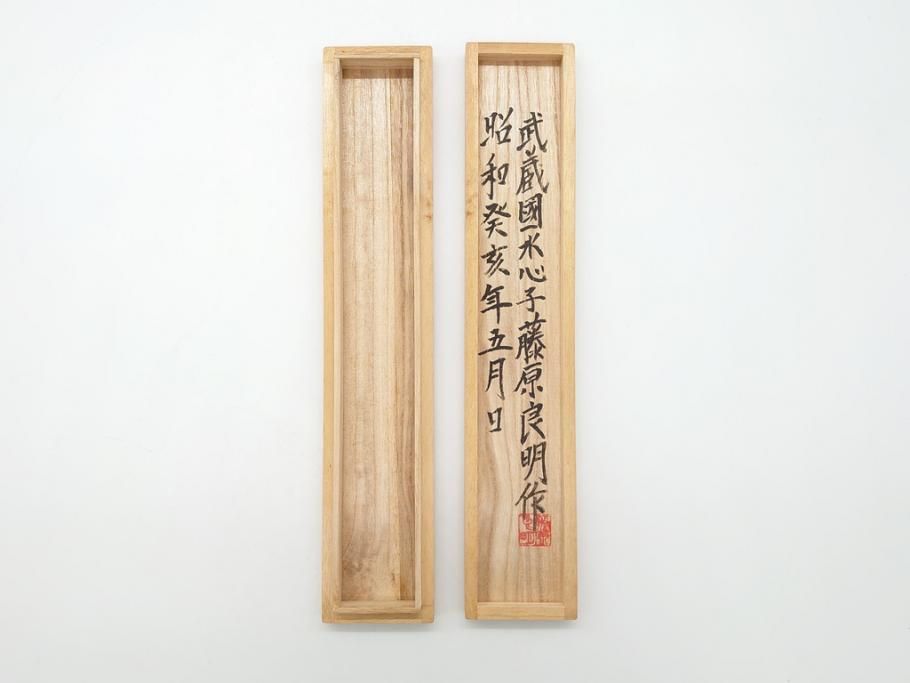 武蔵國水心子藤原良明作
昭和癸亥年五月日